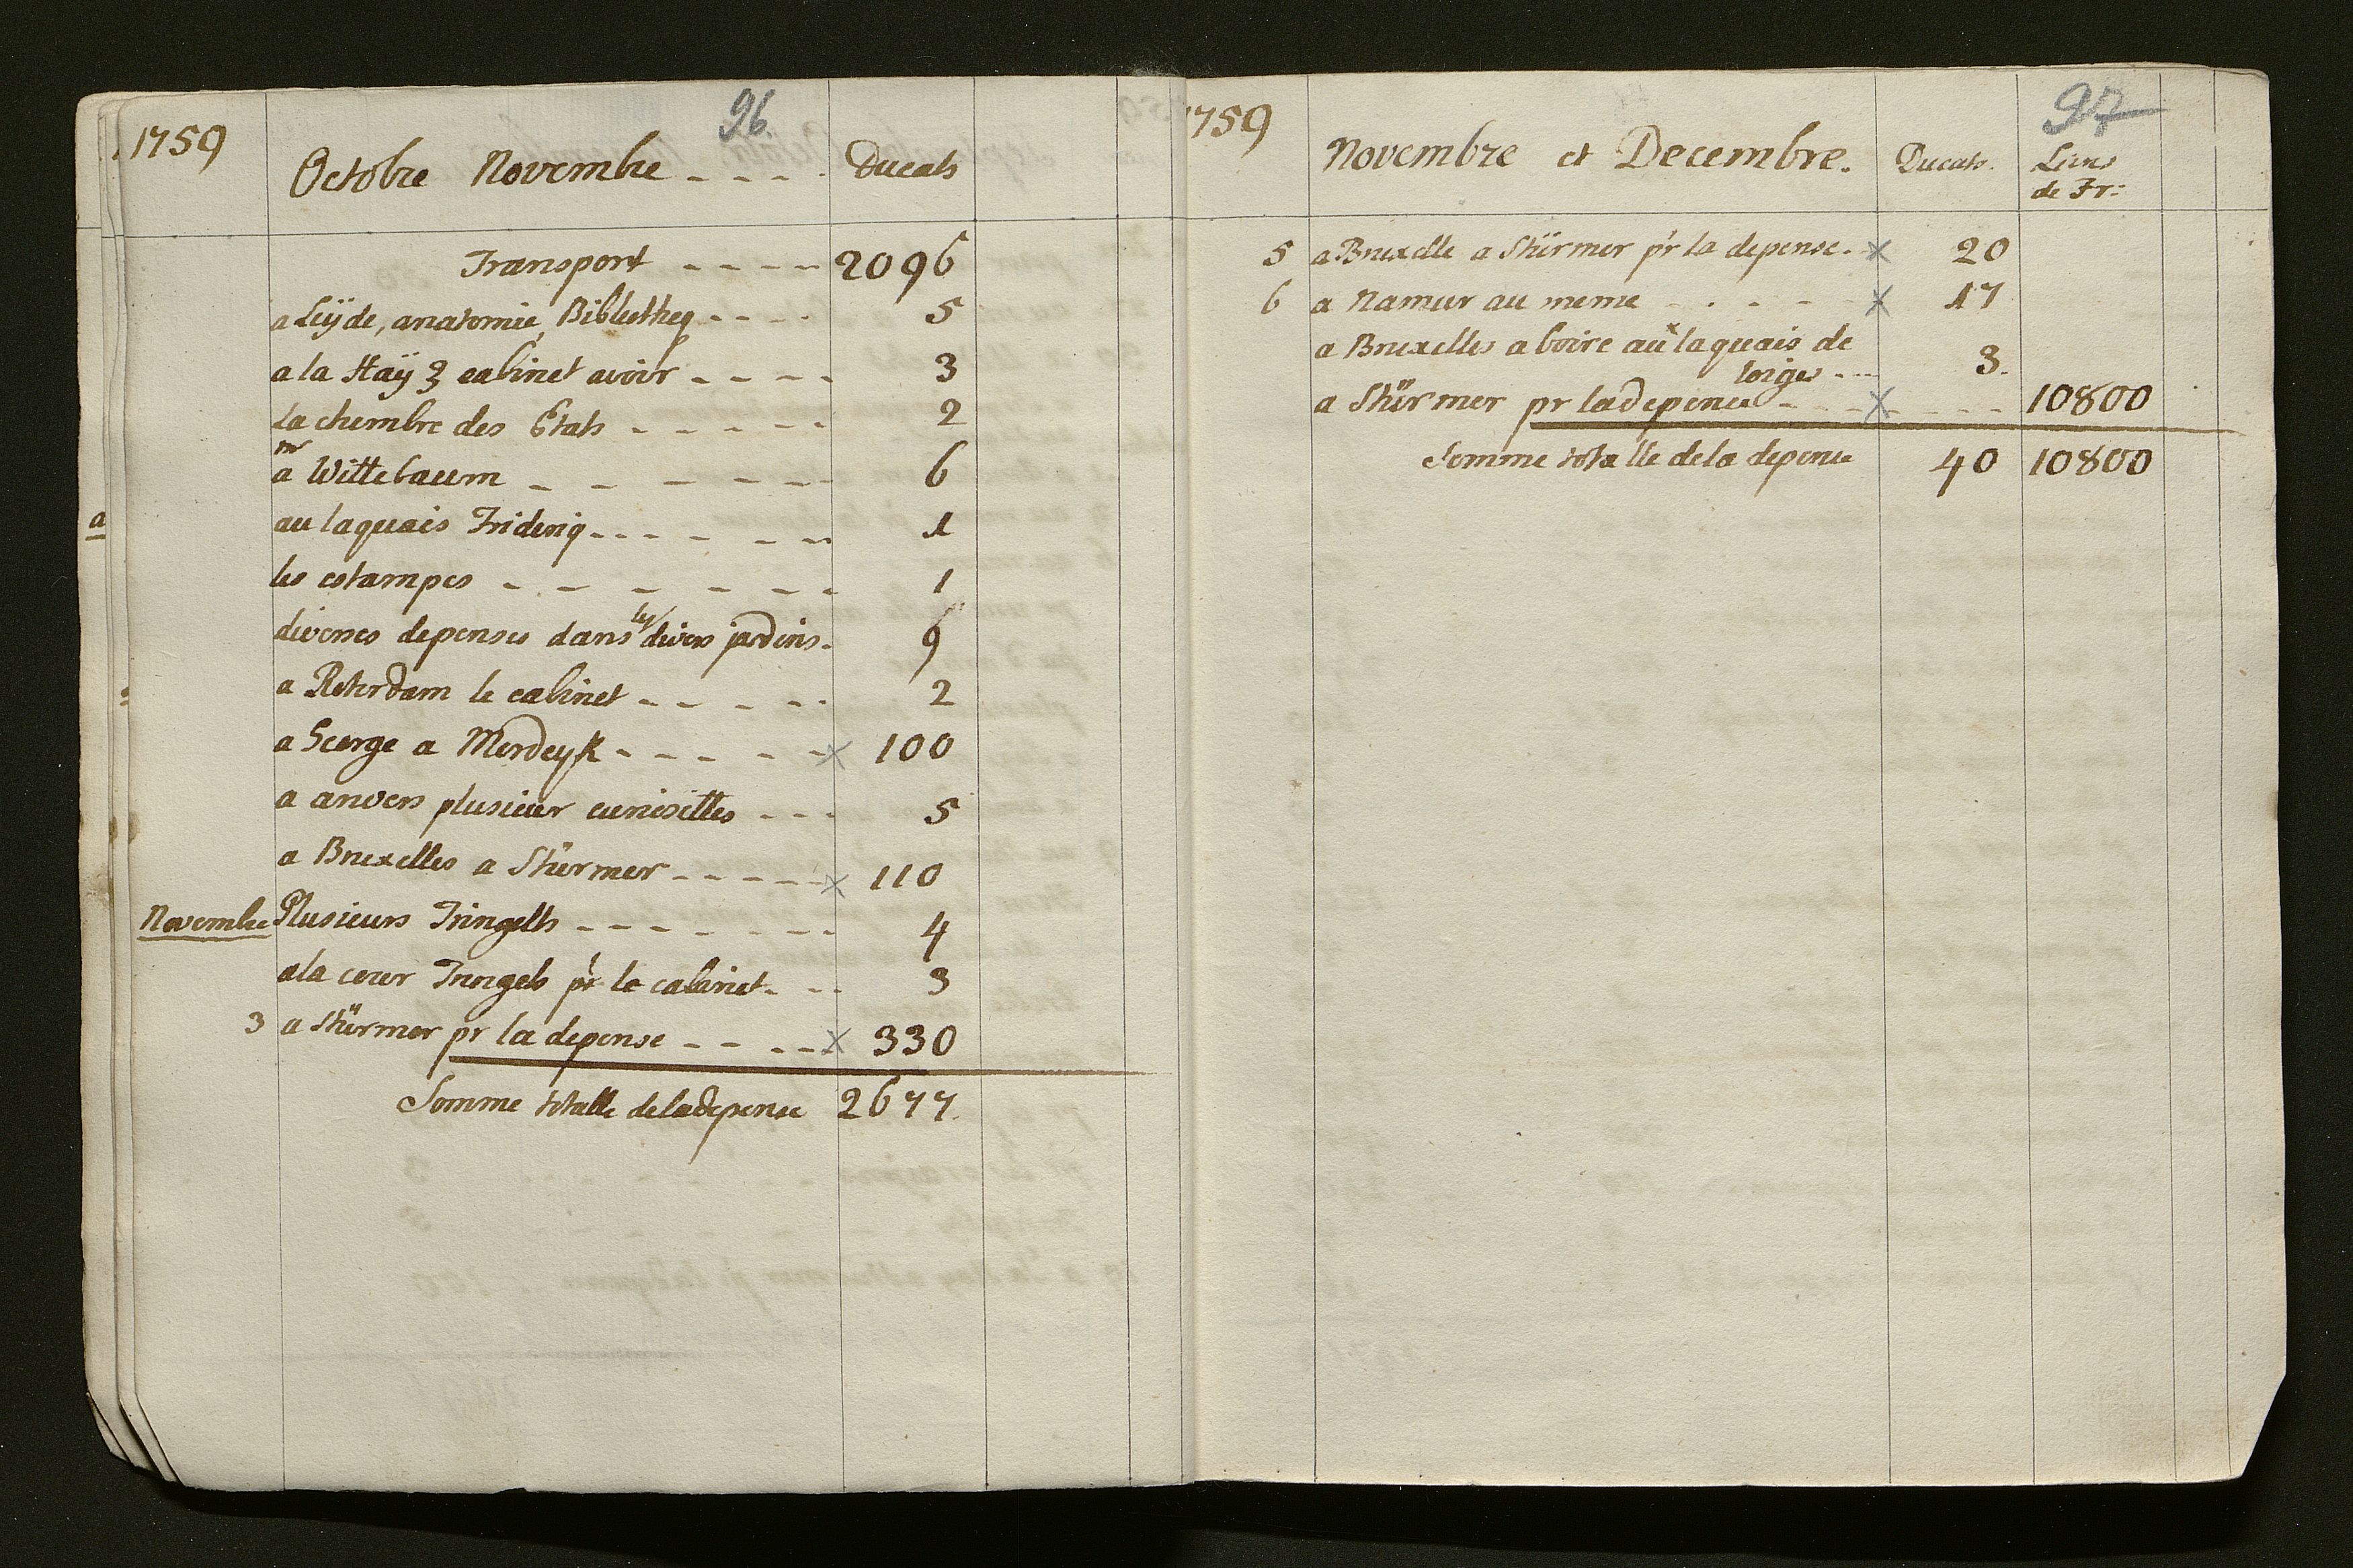 96
1759
Octobre Novembre - - - - Ducats
Transport - - - - - 2096
a Leÿde, anatomie, Bibliotheq - - - - 5
a la Haÿ 3 cabinet avoir - - - - 3
La chembre des Etats - - - - - 2
a Wittebaum - - - - - - 6
au laquais Frideriq - - - - - - 1
les estampes - - - - - - - 1
diverses depenses dans les divers jardins - 9
a Roterdam le cabinet - - - - - 2
a George a Merdeyk - - - - - x 100
a anvers plusieur curiosittes - - - 5
a Bruxelles a Stürmer - - - - - x 110
Novembre Plusieurs Tringelts - - - - - - - 4
a la cour Tringels pr le cabinet - - - 3
3 a Stürmer pr la depense - - - - - x 330
Somme totalle de la depense 2677.
97
1759
Novembre et Decembre. Ducats. Livres
de Fr:
5 a Bruxelle a Stürmer pr la depense. - x 20
6 a Namur au meme - . - - - x 17
a Bruxelles a boire aux laquais de
loige - - - 3.
a Stürmer pr la depense - - - x - - - - 10800
Somme totalle de la depense 40 10800
a